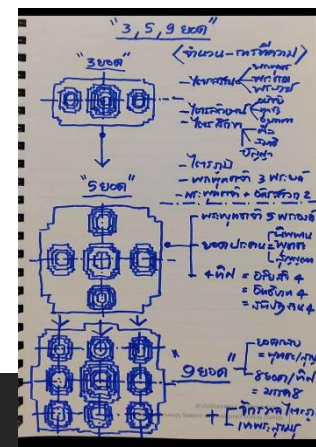 "3, 5, 9 ยอด"
(จำนวน-การตีความ)
"3 ยอด"
พระพุทธ
พระธรรม
พระสงฆ์
- ไตรลักษณ์
อนิจจัง
ทุกขัง
อนัตตา
- ไตรสิกขา
ศีล
สมาธิ
ปัญญา
- ไตรภูมิ
- พระพุทธเจ้า 3 พระองค์
- พระพุทธเจ้า + อัครสาวก 2
"5 ยอด"
พระพุทธเจ้า 5 พระองค์
ยอดประธาน =
นิพพาน
พุทธะ
4 ทิศ = อริยสัจ 4
= อิทธิบาท 4
= สติปัฏฐาน 4
"9 ยอด"
ยอดกลาง
= พุทธะ/
8 ยอด/ทิศ
= มรรค 8
+